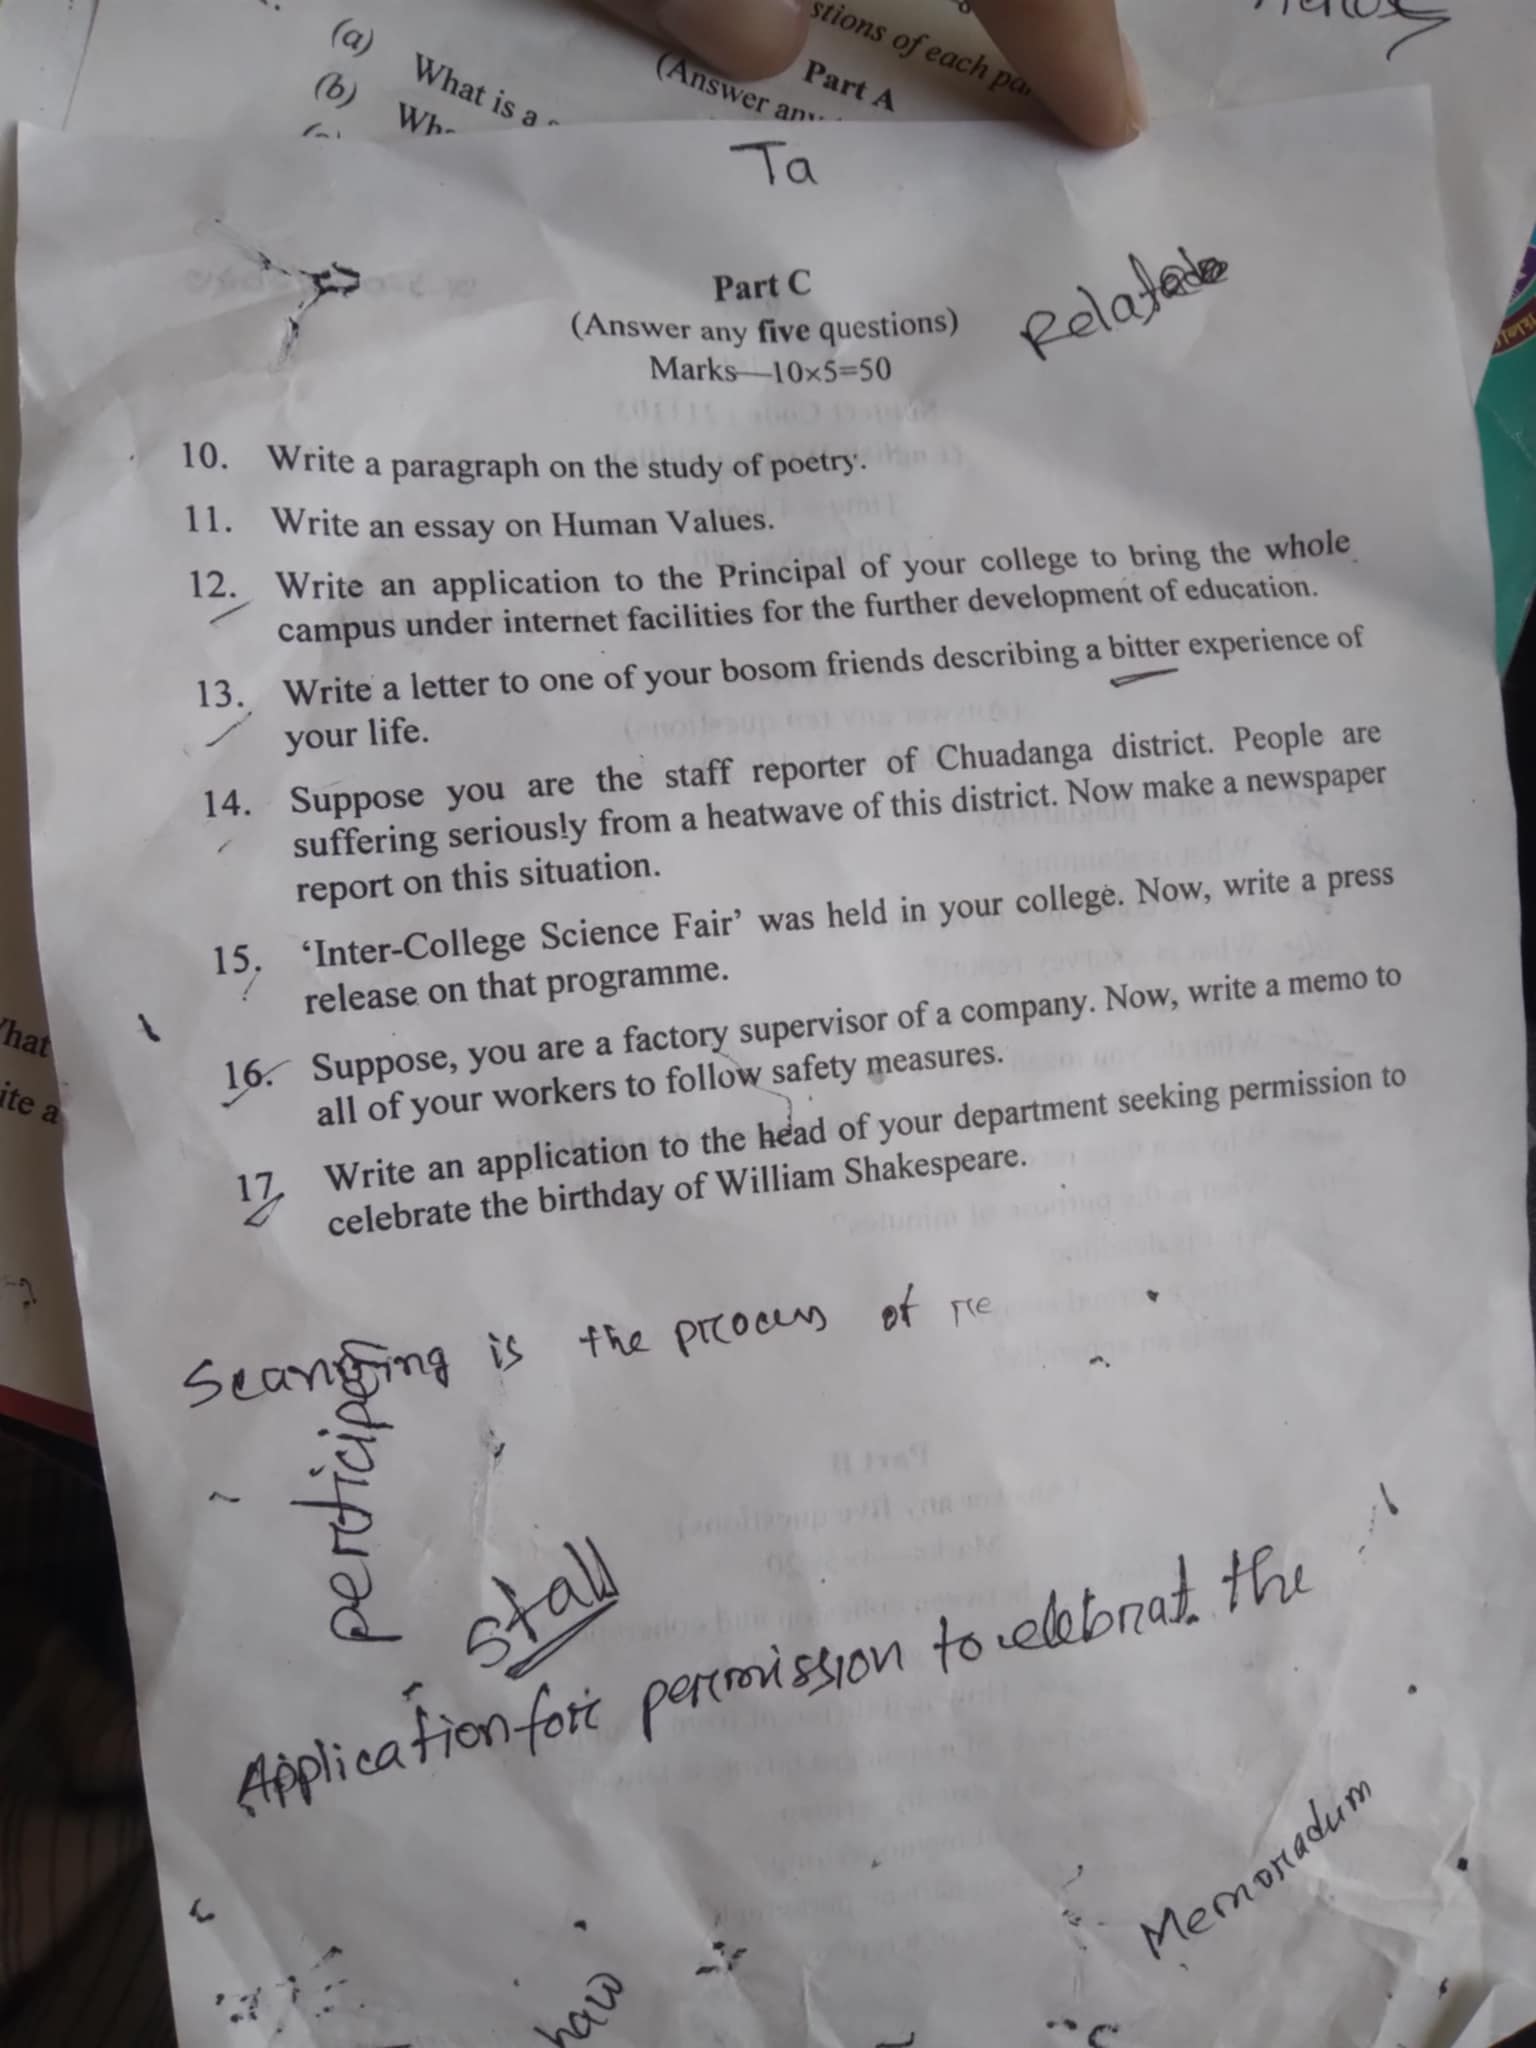 (a) What is a
(b)
stions of each
Part A
(Answer any
Ta
Part C
(Answer any five questions)
Marks—10×5=50
10. Write a paragraph on the study of poetry.
11. Write an essay on Human Values.
12. Write an application to the Principal of your college to bring the whole
campus under internet facilities for the further development of education.
13. Write a letter to one of your bosom friends describing a bitter experience of
your life.
14. Suppose you are the staff reporter of Chuadanga district. People are
suffering seriously from a heatwave of this district. Now make a newspaper
report on this situation.
15. ‘Inter-College Science Fair’ was held in your college. Now, write a press
release on that programme.
16. Suppose, you are a factory supervisor of a company. Now, write a memo to
all of your workers to follow safety measures.
17. Write an application to the head of your department seeking permission to
celebrate the birthday of William Shakespeare.
is the process of re
stall
Application for permission to celebrat the
Memoradum